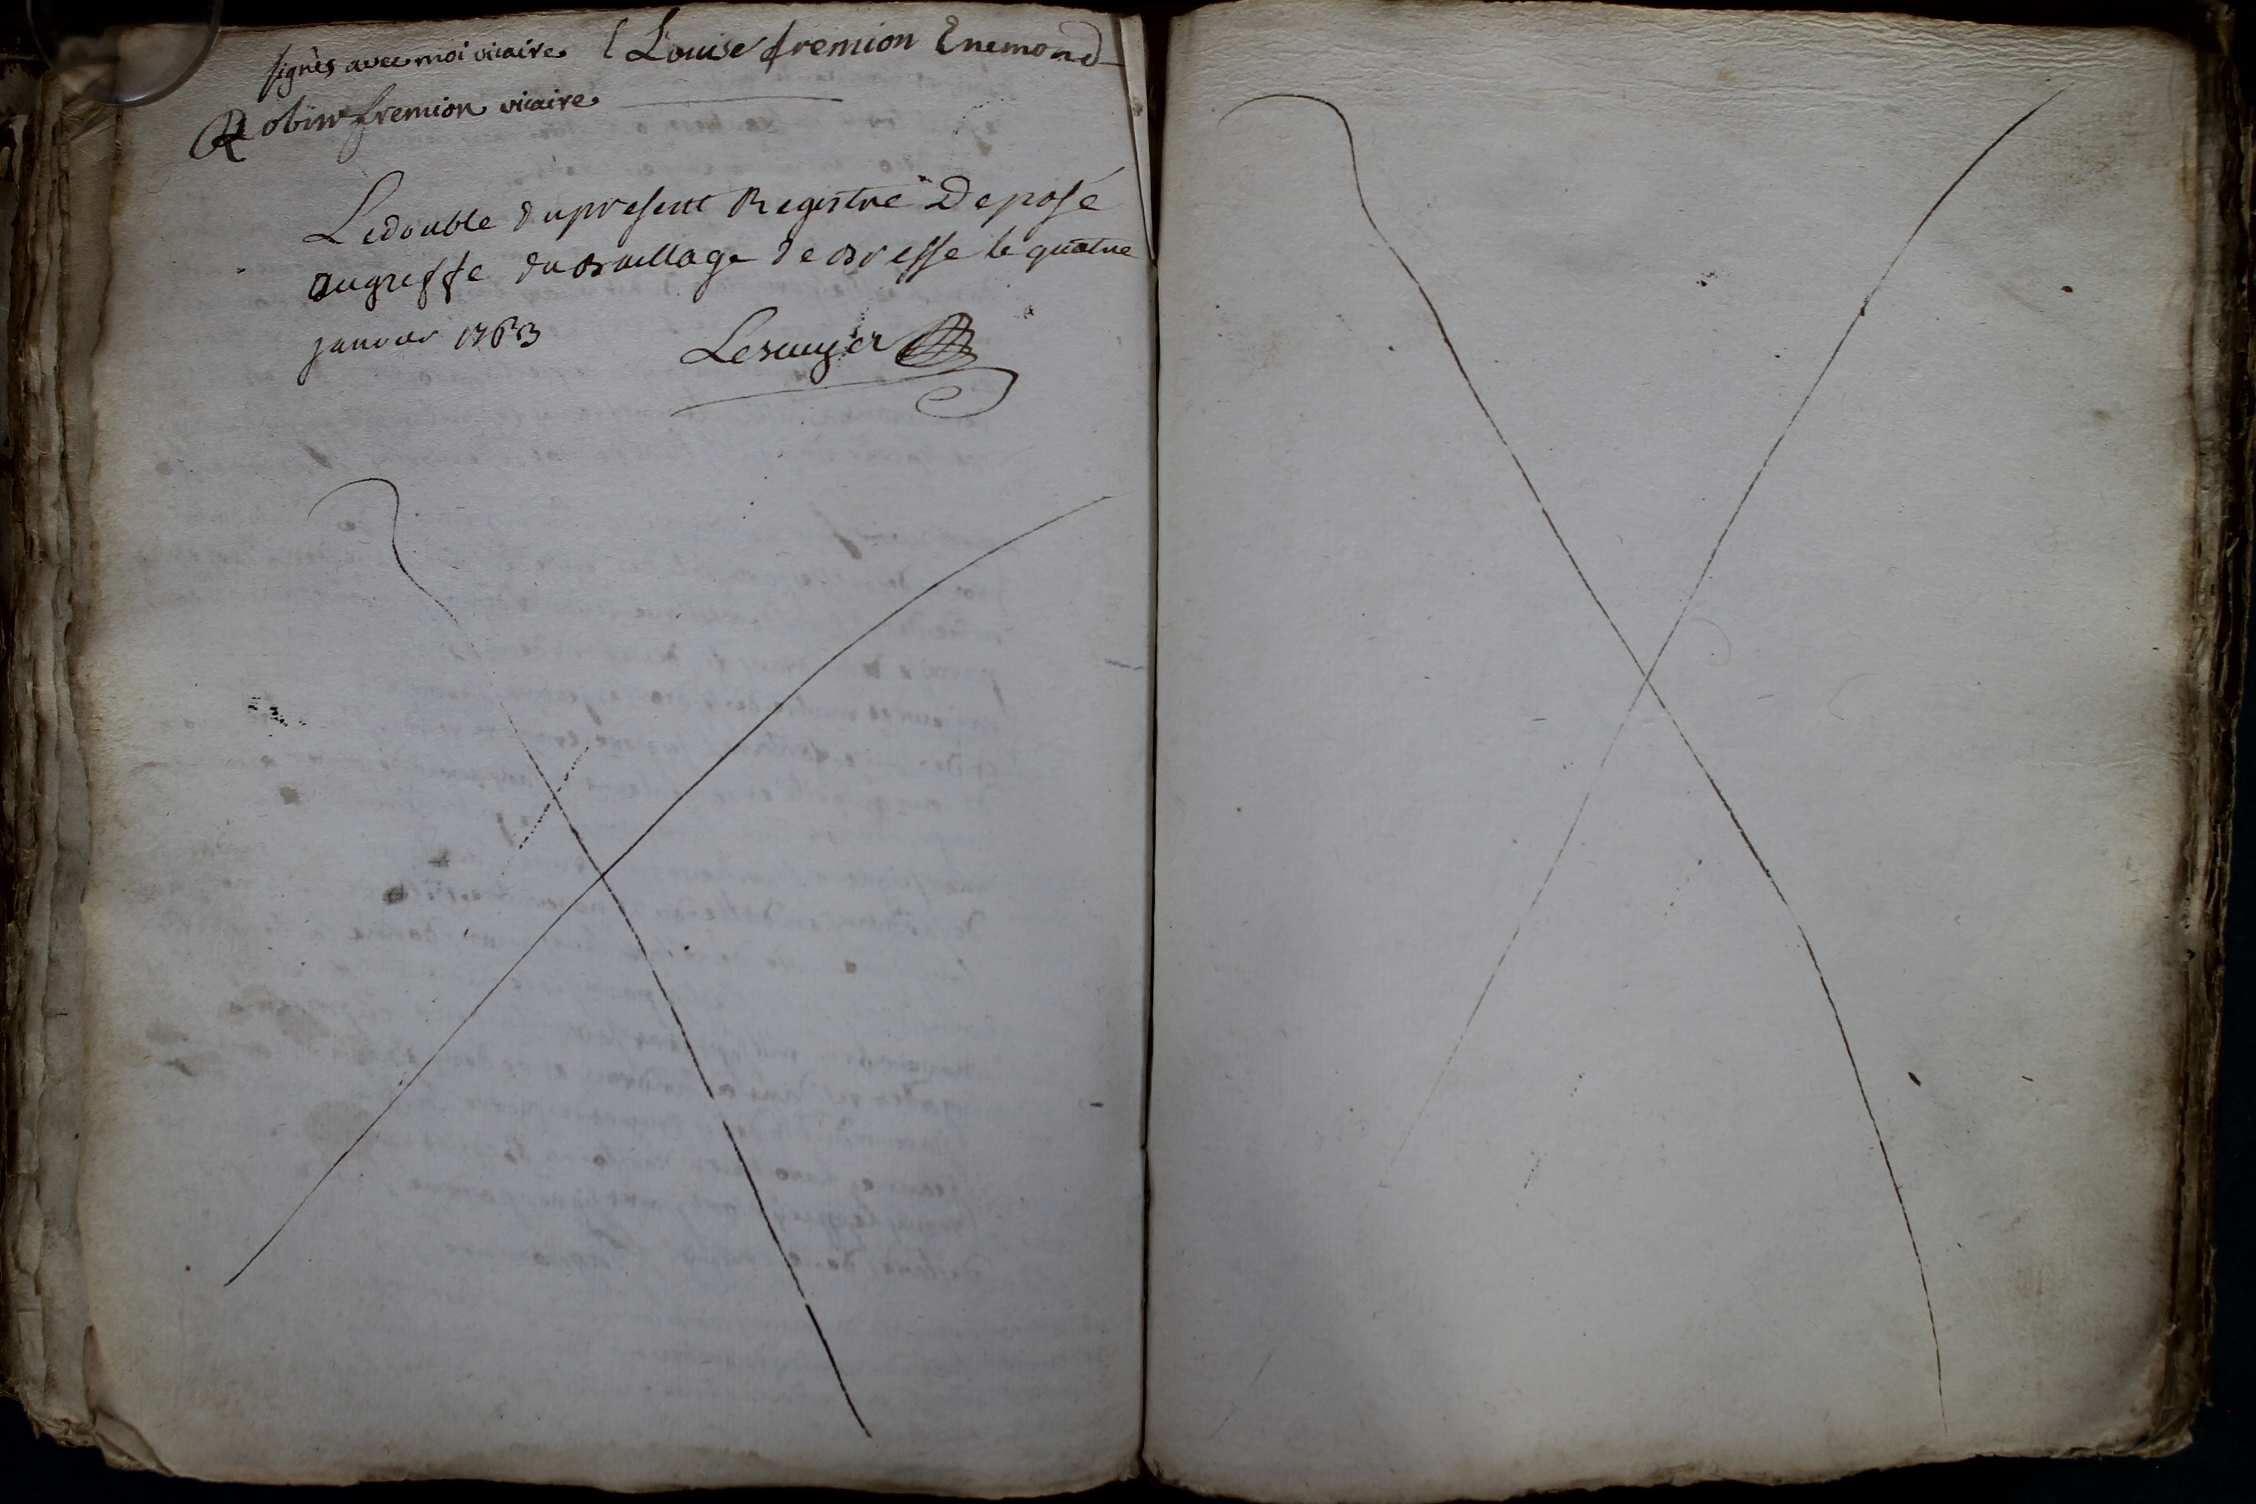 signès avec moi vicaire. L Louise fremion Enemond
Robin fremion vicaire
Le double du present Registre Deposé
au greffe du Baillage de Bresse le quatre
janvier 1763